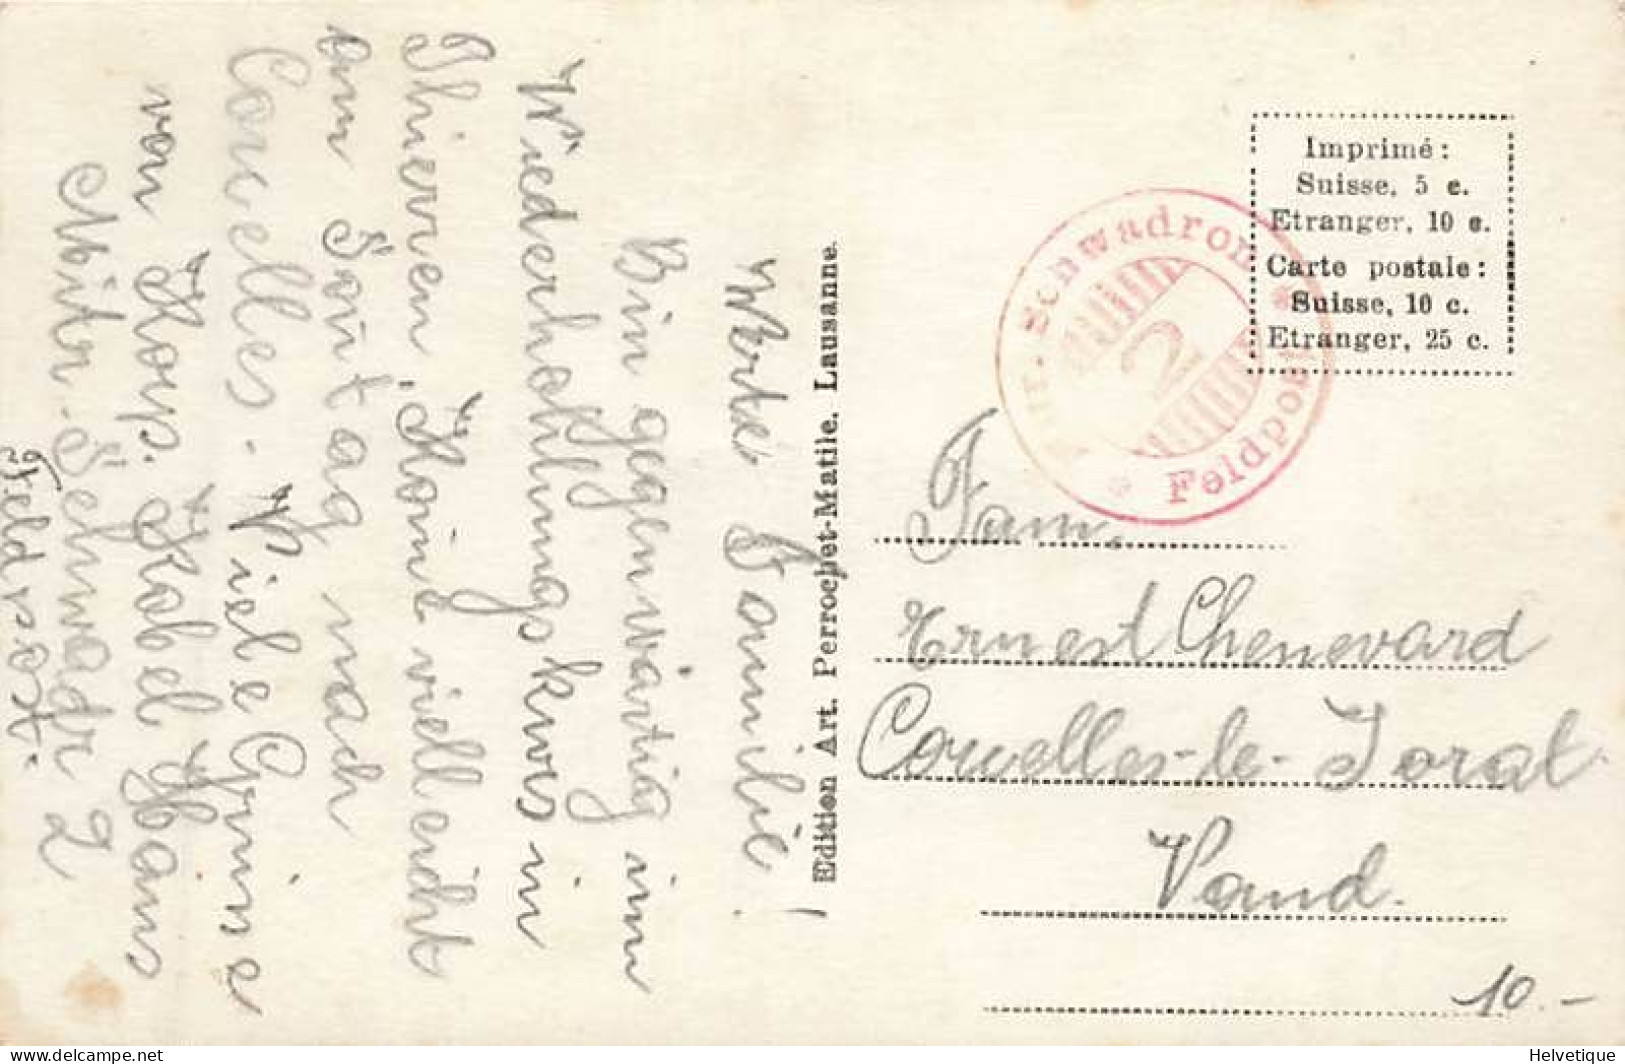 Werte Familie!
Bin gegenwärtig im
Wiederhohlungskurs in
Thierren, Kome villeicht
am Sontag nach
Corcelles. Viele Grüsse
von Korp. Kobel Hans
Mitr.-Schwadr 2
Feldpost.
Edition Art. Perrochet-Matile, Lausanne.
Imprimé:
Suisse, 5 c.
Etranger, 10 c.
Carte postale:
Suisse, 10 c.
Etranger, 25 c.
Schwadron
2
* Feldpost *
Fam.
Ernest Chenevard
Corcelles-le-Jorat
Vaud.
10.-
delcampe.net
Helvetique